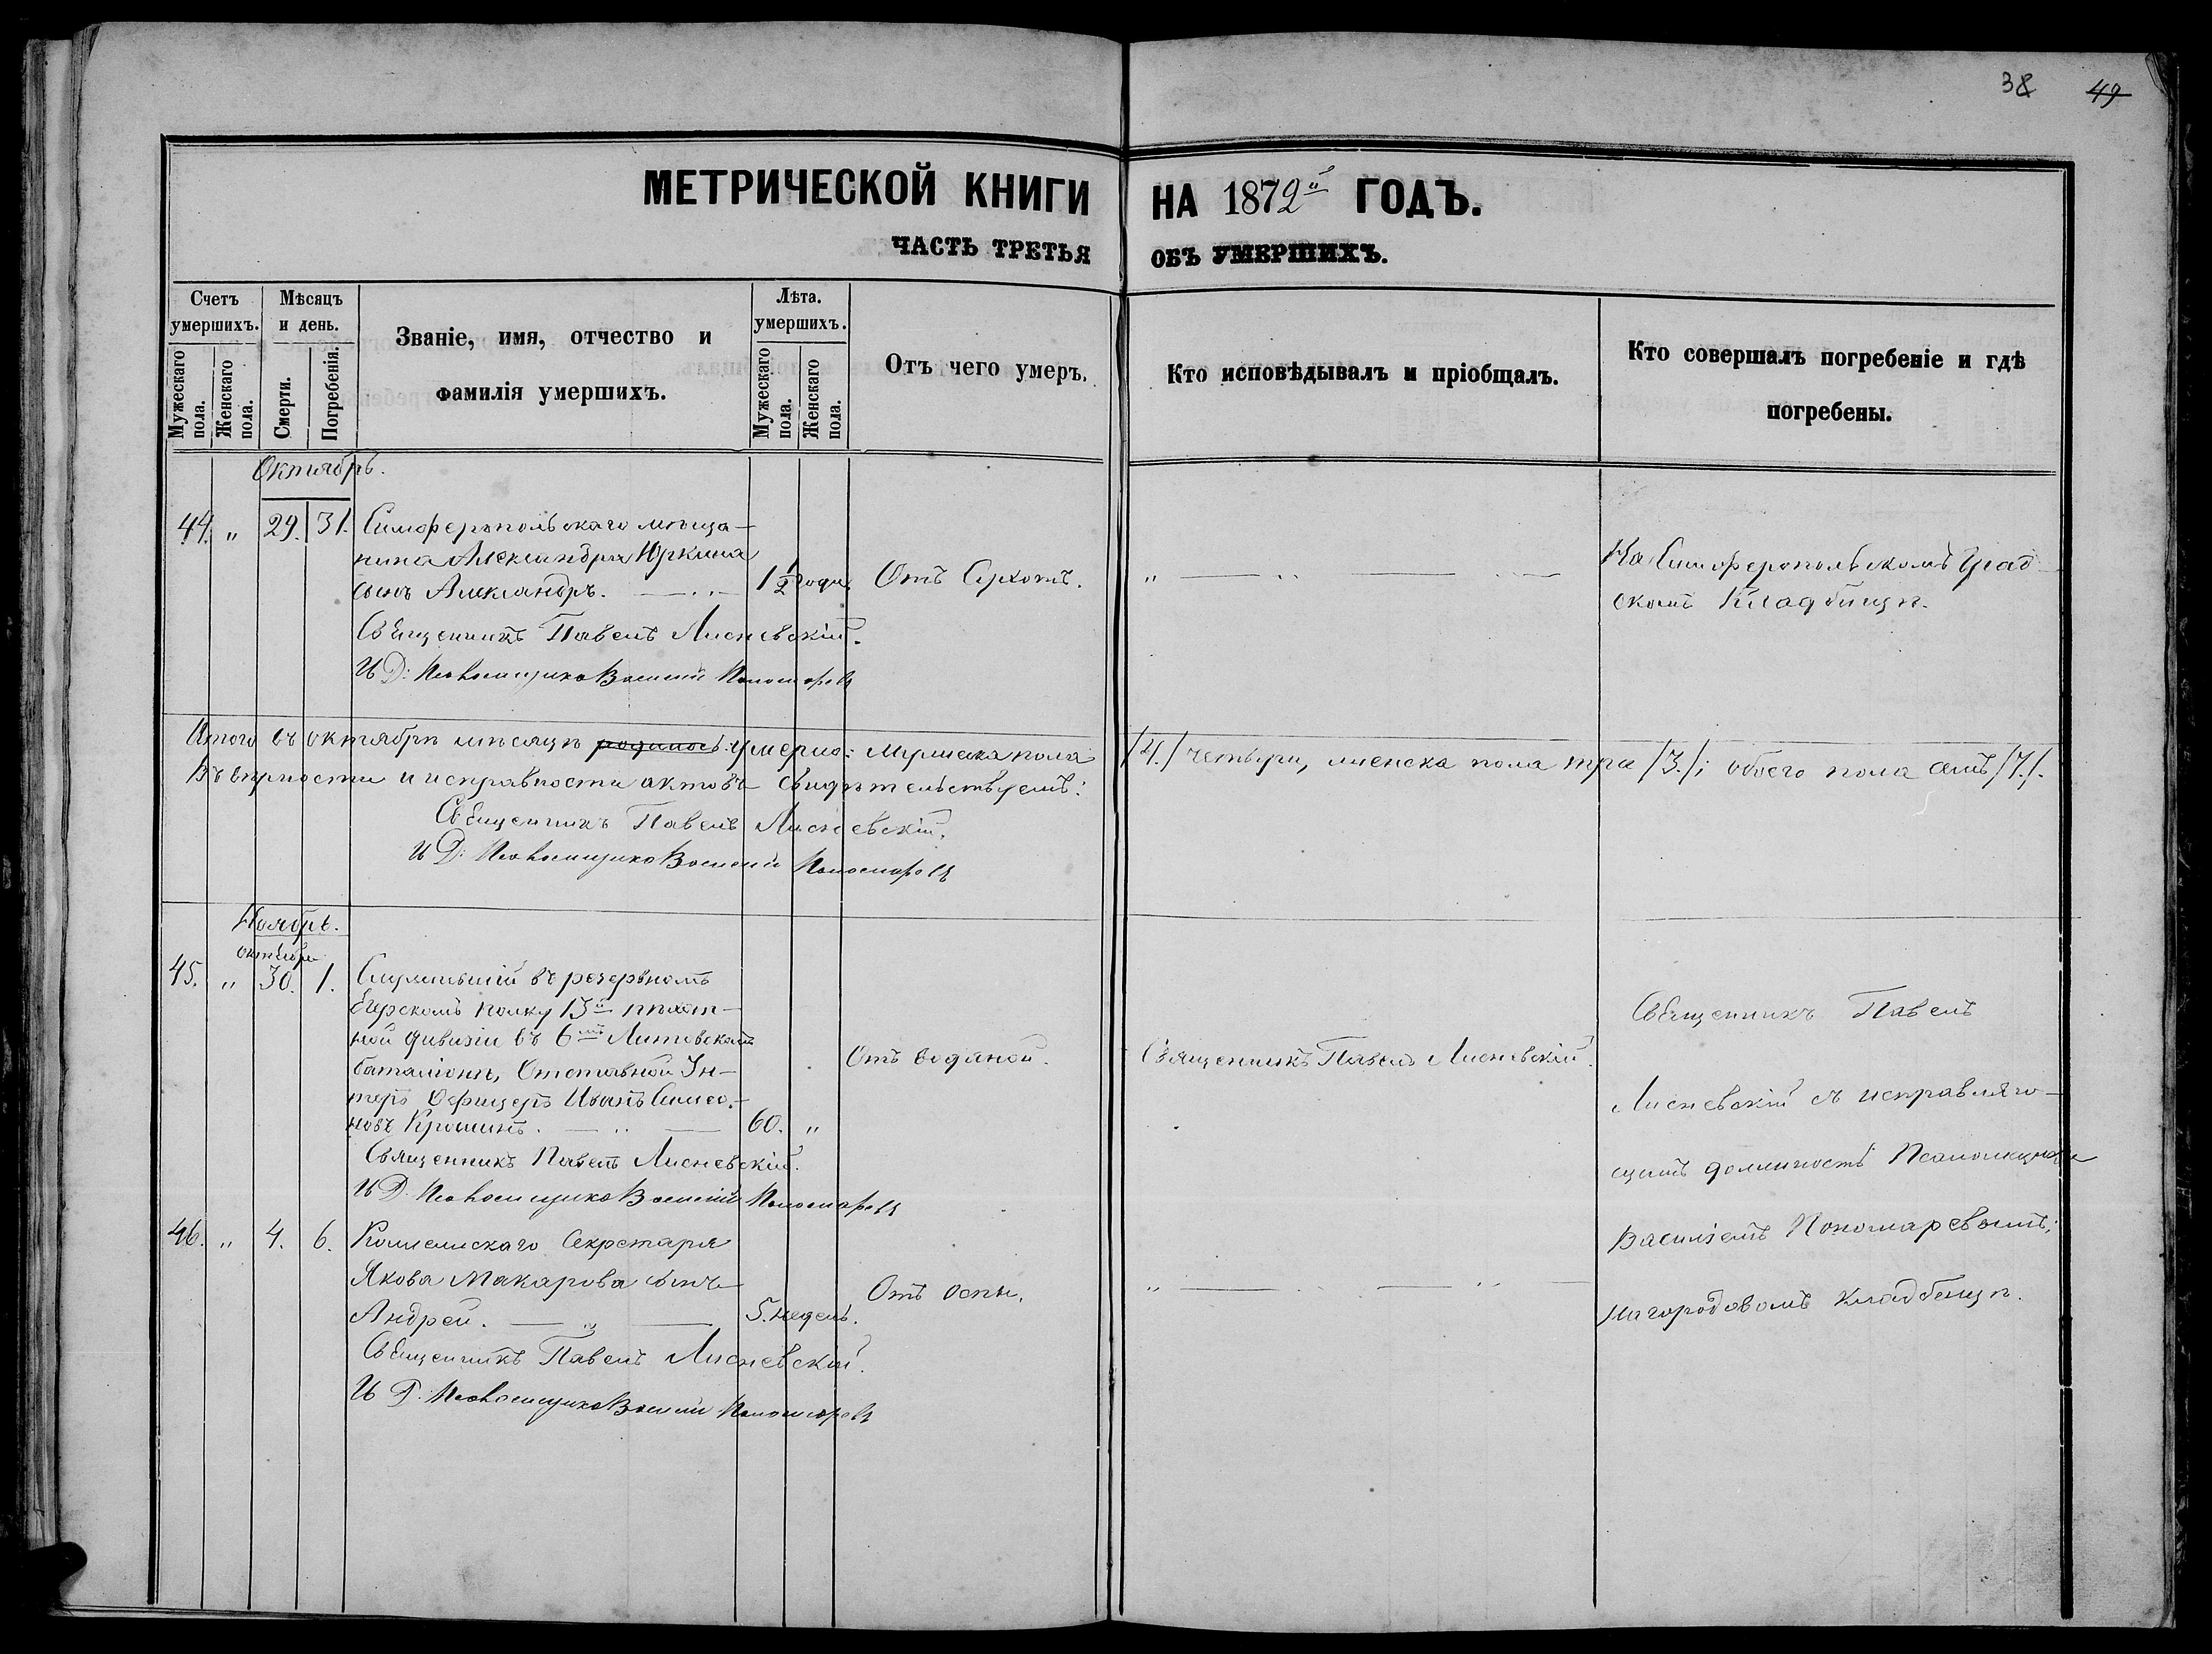 38 49
МЕТРИЧЕСКОЙ КНИГИ НА 1872й ГОДЪ.
ЧАСТЬ ТРЕТЬЯ ОБЪ УМЕРШИХЪ.
Счетъ умершихъ.
Мужескаго пола.
Женскаго пола.
Мѣсяцъ и день.
Смерти.
Погребенія.
Званіе, имя, отчество и
фамилія умершихъ.
Лѣта. умершихъ.
Мужескаго пола.
Женскаго пола.
Отъ чего умеръ.
Кто исповѣдывалъ и пріобщалъ.
Кто совершалъ погребеніе и гдѣ
погребены.
Октябрь.
44. " 29. 31. Симферопольскаго мѣща-
нина Александра Юркина
сынъ Александръ. 1 1/2 года Отъ Сухотъ. "
На Симферопольскомъ Град-
скомъ Кладбищѣ.
Священникъ Павелъ Лисневскій.
И Д: Псаломщика Василій Пономаревъ
Итого въ октябрѣ мѣсяцѣ родилось умерло: мужеска пола /4./ четыри, женска пола три /3./; обоего пола семь /7./.
Въ вѣрности и исправности актовъ свидѣтельствуемъ:
Священникъ Павелъ Лисневскій.
И Д: Псаломщика Василій Пономаревъ
Ноябрь.
октября
45. " 30. 1. Служившій въ резервномъ
Егерскомъ полку 13й пѣхот-
ной дивизіи въ 6мъ Литовскомъ
баталіонѣ, Отставной Ун-
теръ Офицеръ Иванъ Симео-
новъ Крошинъ. 60. "
Отъ водяной.
Священникъ Павелъ Лисневскій.
Священникъ Павелъ Лисневскій.
И Д. Псаломщика Василій Пономаревъ
46. " 4. 6. Коллежскаго Секретаря
Якова Макарова сынъ
Андрей. 5. недель.
Отъ оспы. "
Священникъ Павелъ Лисневскій.
И Д. Псаломщика Василій Пономаревъ
Священникъ Павелъ
Лисневскій съ исправляю-
щимъ должность Псаломщика
Василіемъ Пономаревымъ;
на городовомъ кладбищѣ.